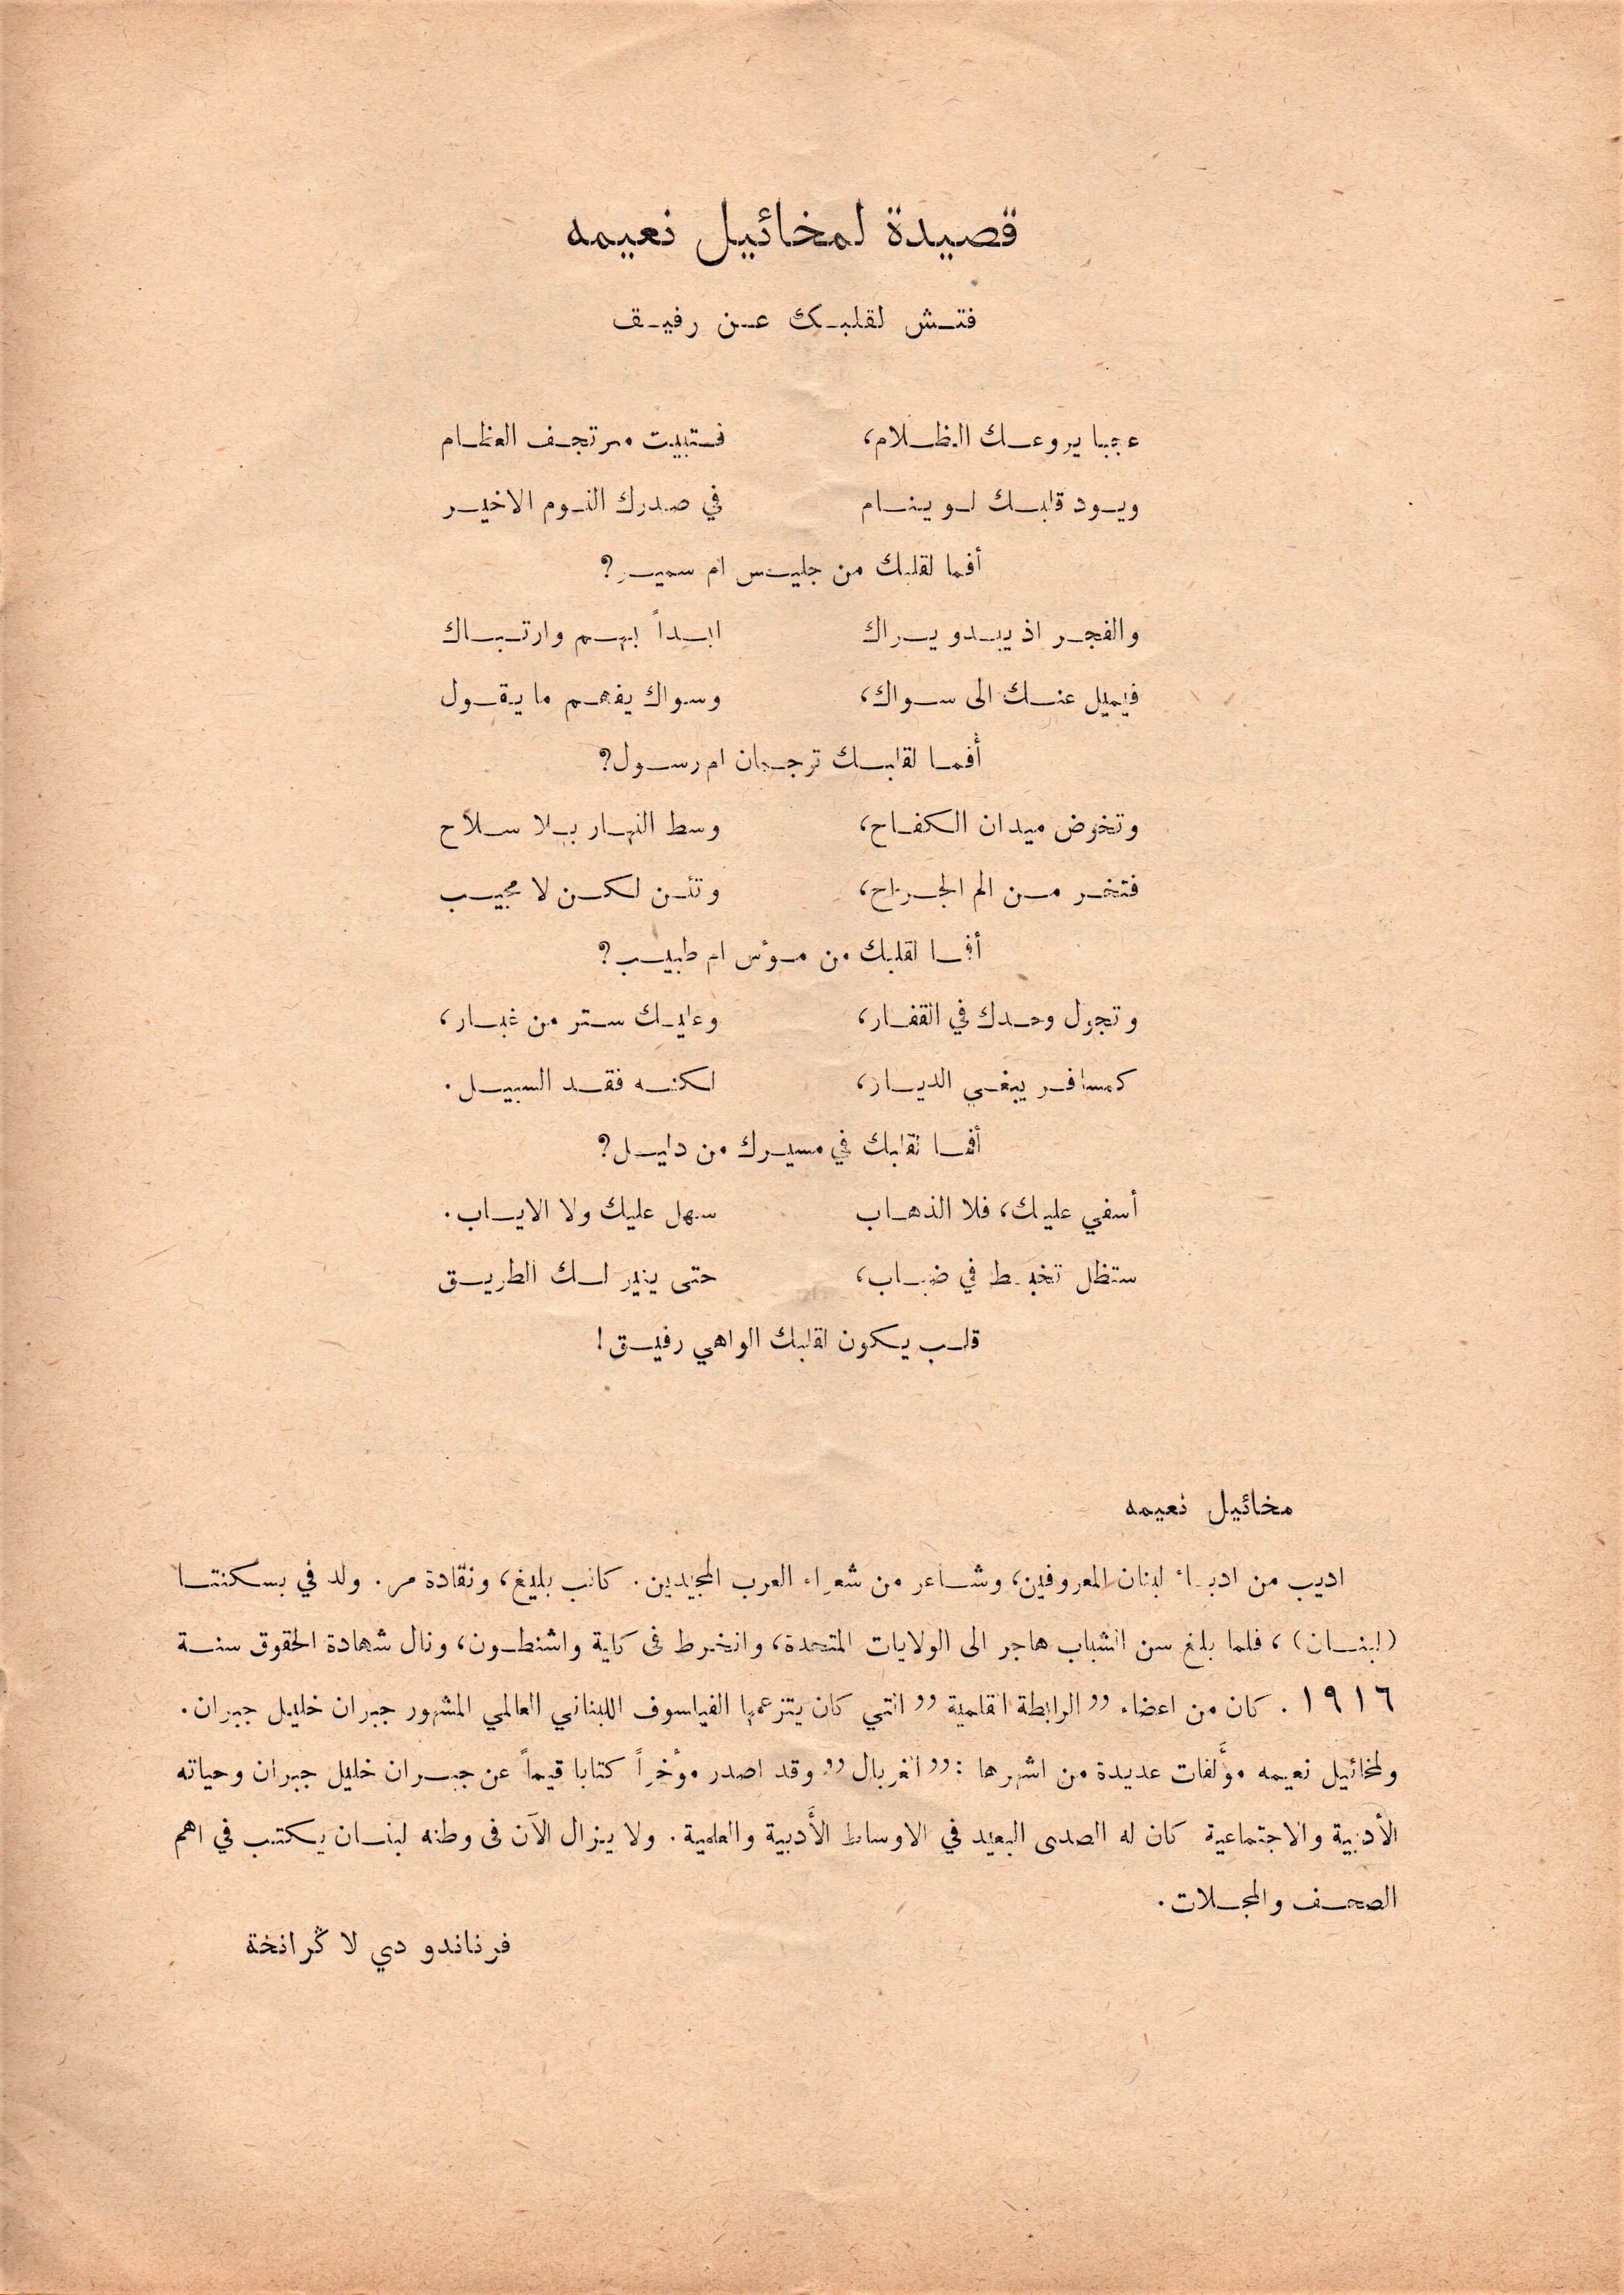 قصيدة لمخائيل نعيمه
فتش لقلبك عن رفيق
عجبا يروعك الظلام، فتبيت مرتجف العظام
ويود قلبك لو ينام في صدرك النوم الاخير
أفما لقلبك من جليس ام سمير؟
والفجر اذ يبدو يراك ابداً بهم وارتباك
فيميل عنك الى سواك، وسواك يفهم ما يقول
أفما لقلبك ترجمان ام رسول؟
وتخوض ميدان الكفاح، وسط النهار بلا سلاح
فتخر من الم الجراح، وتئن لكن لا مجيب
أفما لقلبك من مؤس ام طبيب؟
وتجول وحدك في القفار، وعليك ستر من غبار،
كمسافر يبغي الديار، لكنه فقد السبيل.
أفما لقلبك في مسيرك من دليل؟
أسفي عليك، فلا الذهاب سهل عليك ولا الاياب.
ستظل تخبط في ضباب، حتى ينير لك الطريق
قلب يكون لقلبك الواهي رفيق!
مخائيل نعيمه
اديب من ادباء لبنان المعروفين، وشاعر من شعراء العرب المجيدين. كاتب بليغ، ونقادة مر. ولد في بسكنتا
(لبنان)، فلما بلغ سن الشباب هاجر الى الولايات المتحدة، وانخرط في كلية واشنطون، ونال شهادة الحقوق سنة
١٩١٦. كان من اعضاء ,,الرابطة القلمية,, التي كان يتزعمها الفيلسوف اللبناني العالمي المشهور جبران خليل جبران.
ولمخائيل نعيمه مؤلفات عديدة من اشهرها: ,,الغربال,, وقد اصدر مؤخراً كتابا قيماً عن جبران خليل جبران وحياته
الأدبية والاجتماعية كان له الصدى البعيد في الاوساط الأدبية والعلمية. ولا يزال الآن فى وطنه لبنان يكتب في اهم
الصحف والمجلات.
فرناندو دي لا ڭرانخة